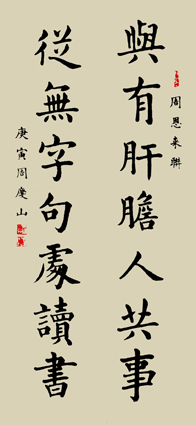 與有肝膽人共事
周恩来聯
從無字句處讀書
庚寅周慶山